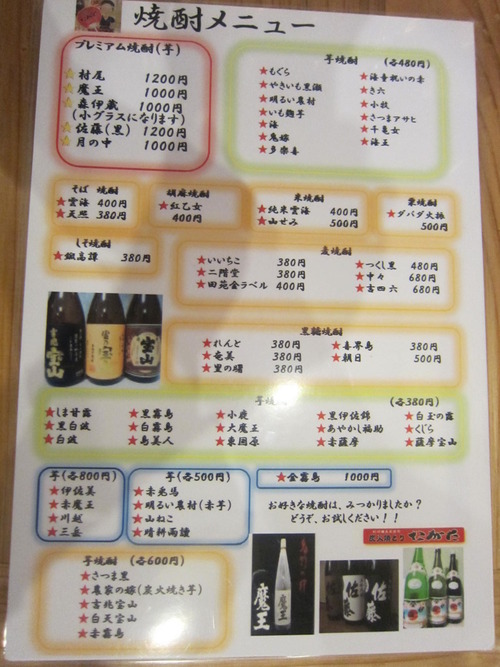 焼酎メニュー
プレミアム焼酎(芋)
★村尾 1200円
★魔王 1000円
★森伊蔵 1000円
(小グラスになります)
★佐藤(黒) 1200円
★月の中 1000円
芋焼酎 (各480円)
★もぐら
★やきいも黒瀬
★明るい農村
★いも麹芋
★海
★鬼嫁
★多楽喜
★海童祝いの赤
★き六
★小牧
★さつまアサヒ
★千亀女
★海王
そば焼酎
★雲海 400円
★天照 380円
胡麻焼酎
★紅乙女
400円
米焼酎
★純米雲海 400円
★山せみ 500円
栗焼酎
★ダバダ火振
500円
しそ焼酎
★鍛高譚 380円
麦焼酎
★いいちこ 380円
★二階堂 380円
★田苑金ラベル 400円
★つくし黒 480円
★中々 680円
★吉四六 680円
黒糖焼酎
★れんと 380円
★奄美 380円
★里の曙 380円
★喜界島 380円
★朝日 500円
芋焼酎 (各380円)
★しま甘露
★黒白波
★白波
★黒霧島
★白霧島
★島美人
★小鹿
★大魔王
★東国原
★黒伊佐錦
★あやかし福助
★赤薩摩
★白玉の露
★くじら
★薩摩宝山
芋(各800円)
★伊佐美
★赤魔王
★川越
★三岳
芋(各500円)
★赤兎馬
★明るい農村(赤芋)
★山ねこ
★晴耕雨讀
★金霧島 1000円
お好きな焼酎は、みつかりましたか?
どうぞ、お試しください!!
芋焼酎 (各600円)
★さつま黒
★農家の嫁(炭火焼き芋)
★吉兆宝山
★白天宝山
★赤霧島
宝山
宝山
魔王
魔王
佐藤
佐藤